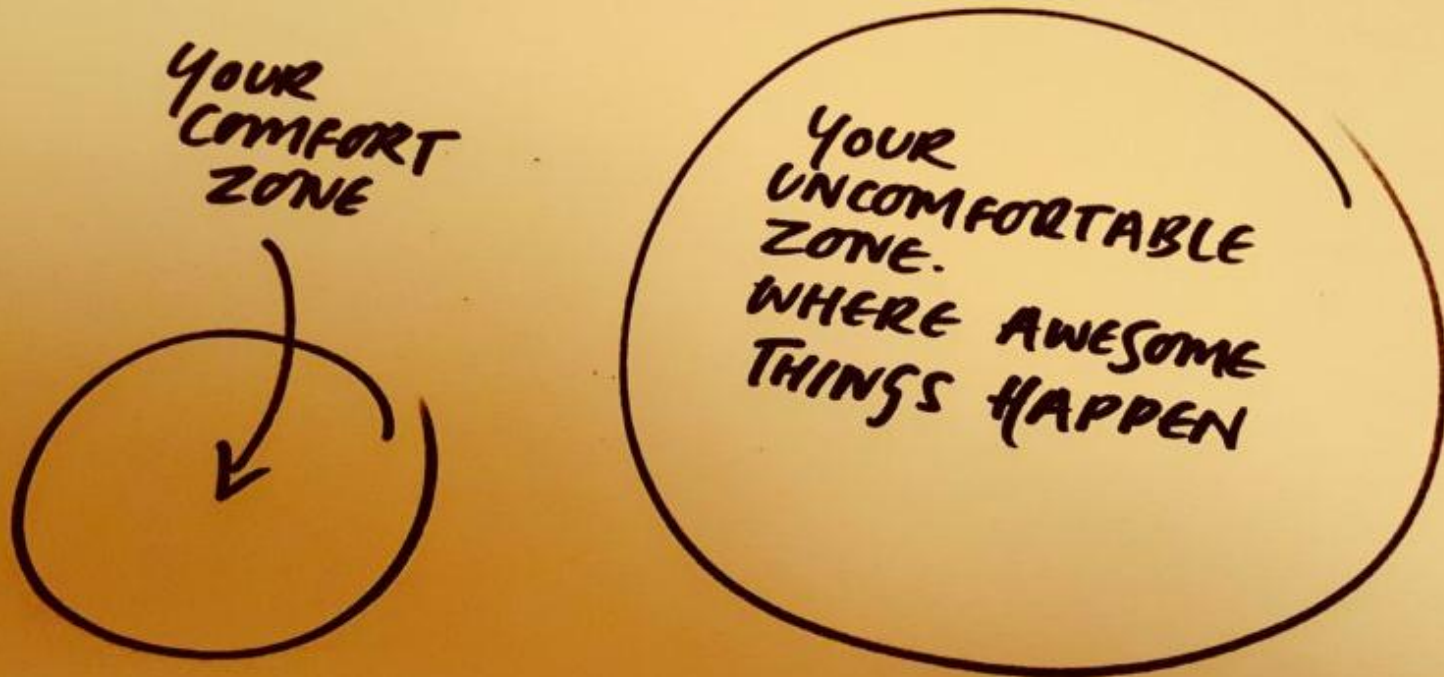 YOUR
COMFORT
ZONE
YOUR
UNCOMFORTABLE
ZONE.
WHERE AWESOME
THINGS HAPPEN